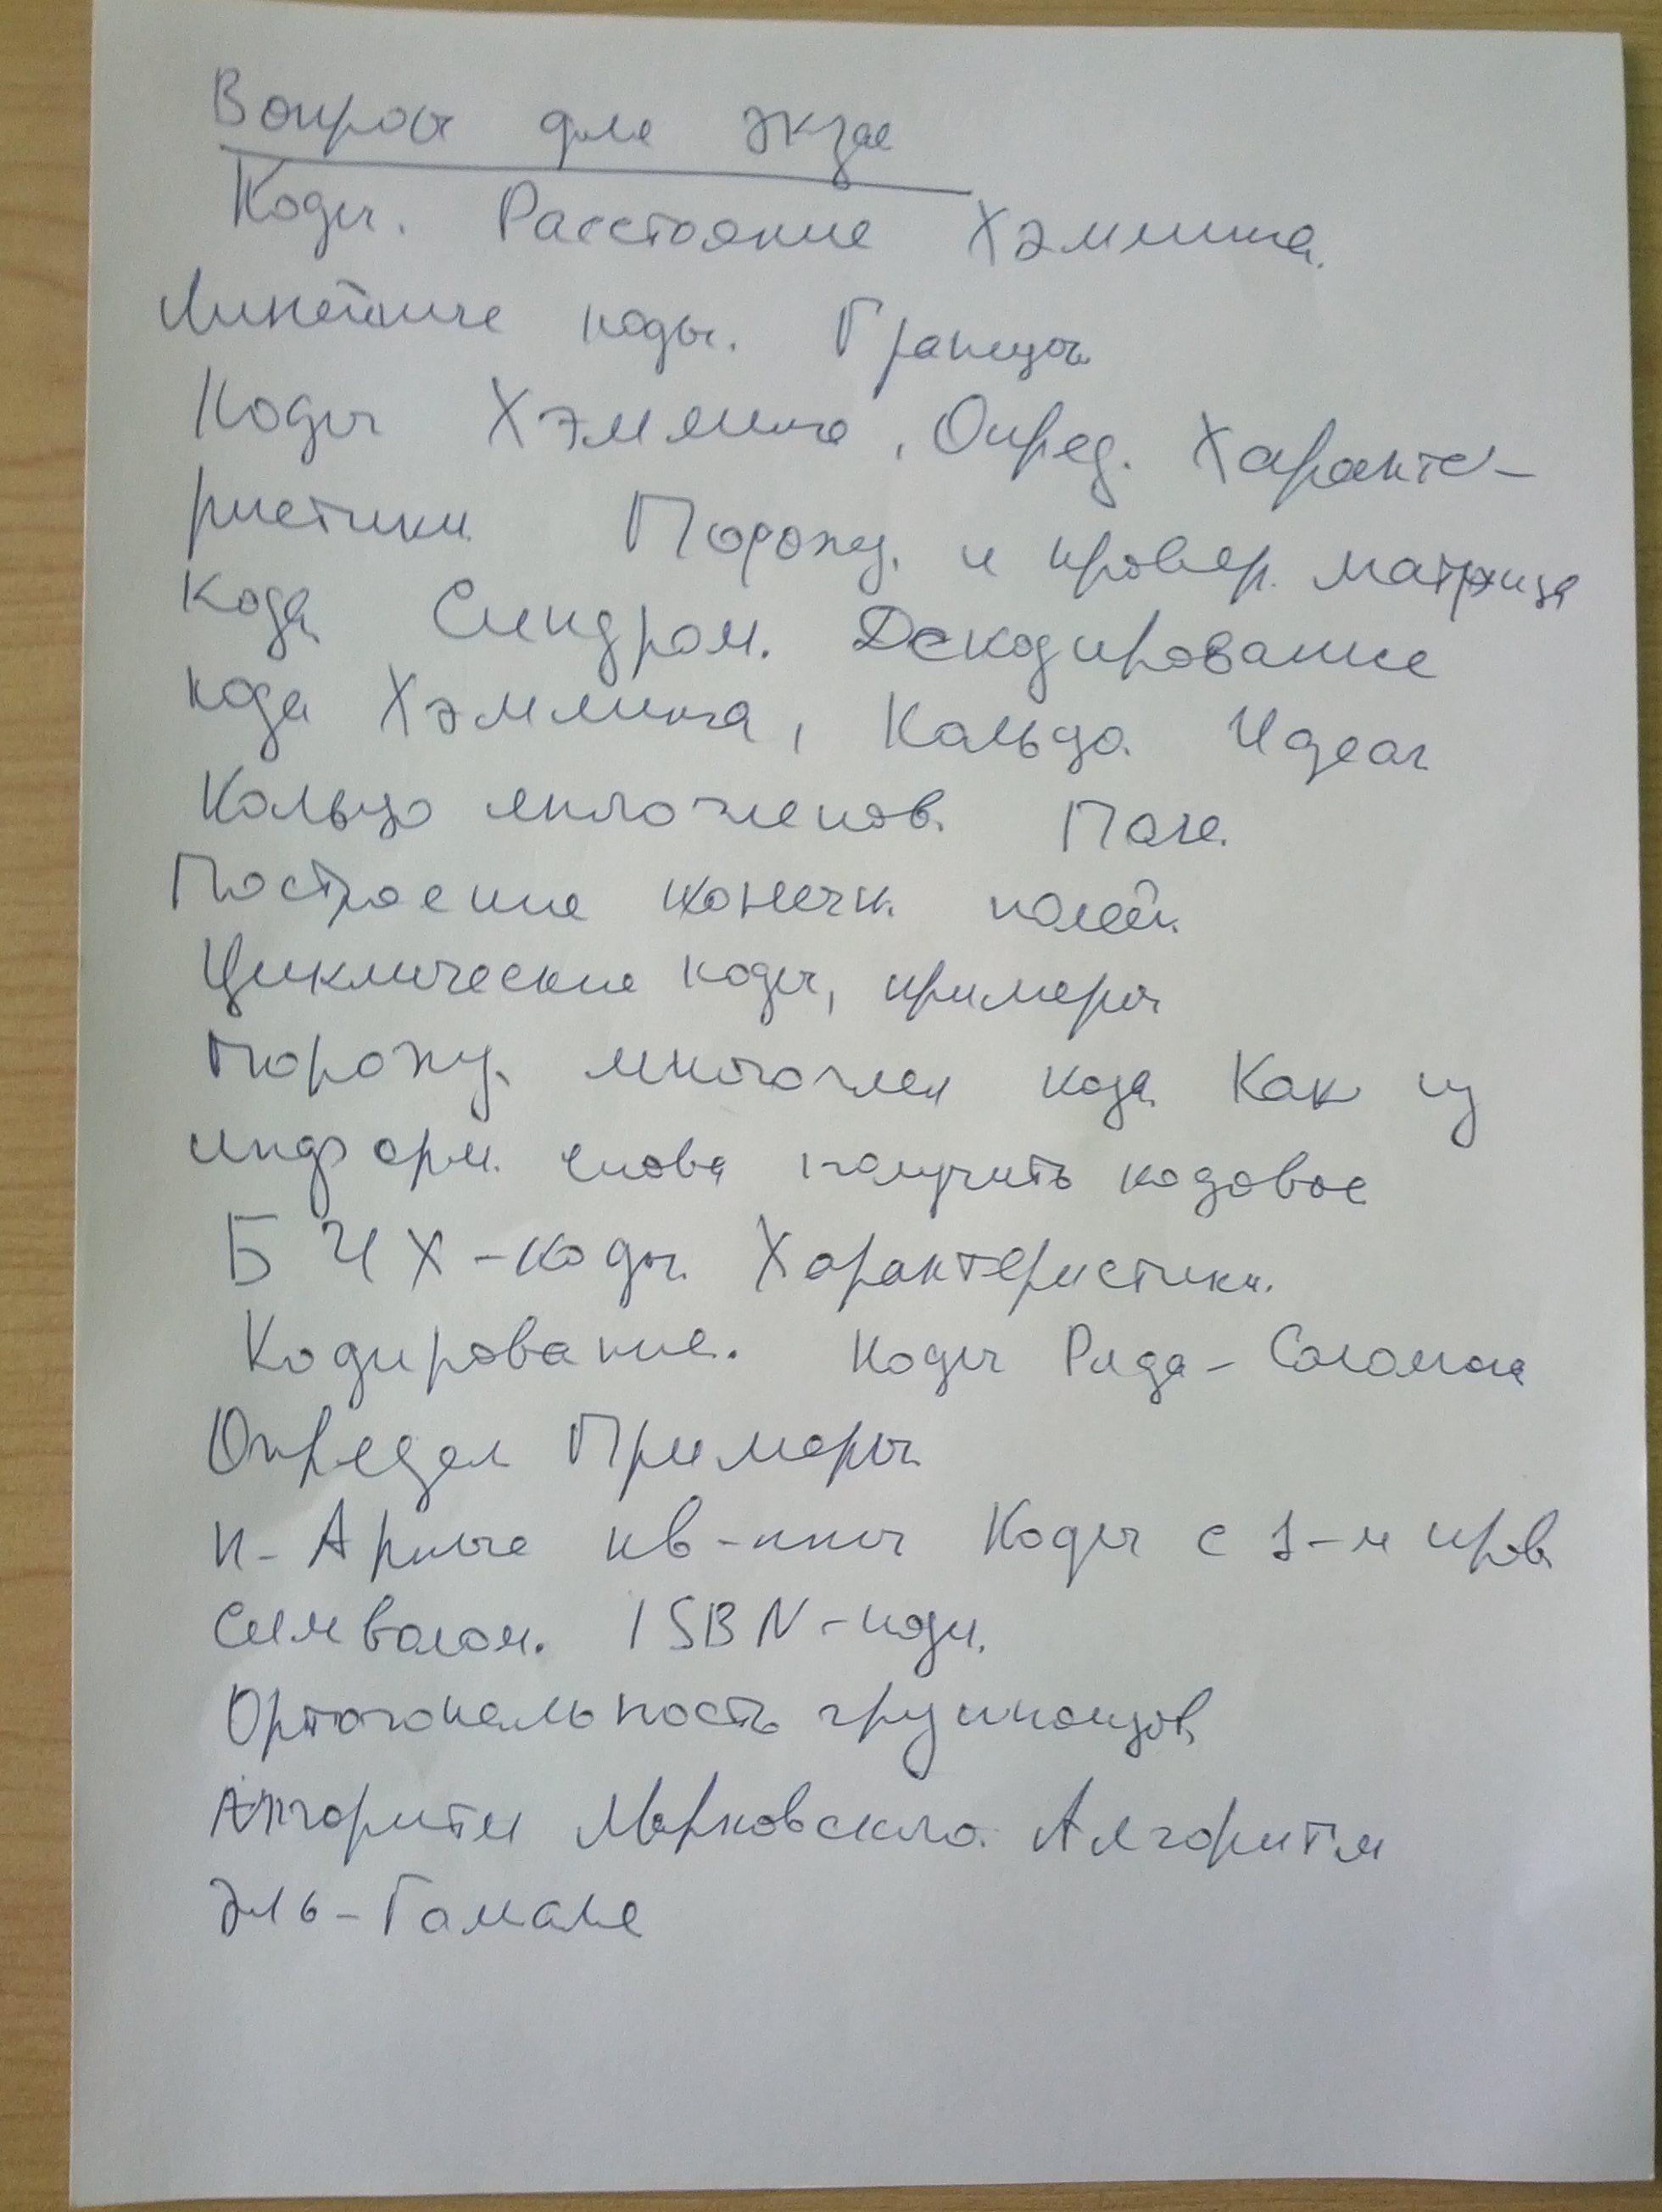 Вопросы для экза
Коды. Расстояние Хэмминга.
Линейные коды. Границы
Коды Хэмминга, Опред. Характе-
ристики Порожд. и провер. матрица
кода Синдром. Декодирование
кода Хэмминга, Кольцо. Идеал
Кольцо многочленов. Поле.
Построение конечн. полей.
Циклические коды, примеры
Порожд. многочлен кода Как из
информ. слова получить кодовое
БЧХ-коды. Характеристики.
Кодирование. Коды Рида-Соломона
Определ Примеры
n-Арные кв-ппы Коды с 1-м пров.
символом. ISBN-коды.
Ортогональность группоидов
Алгоритм Марковского. Алгоритм
Эль-Гамаля